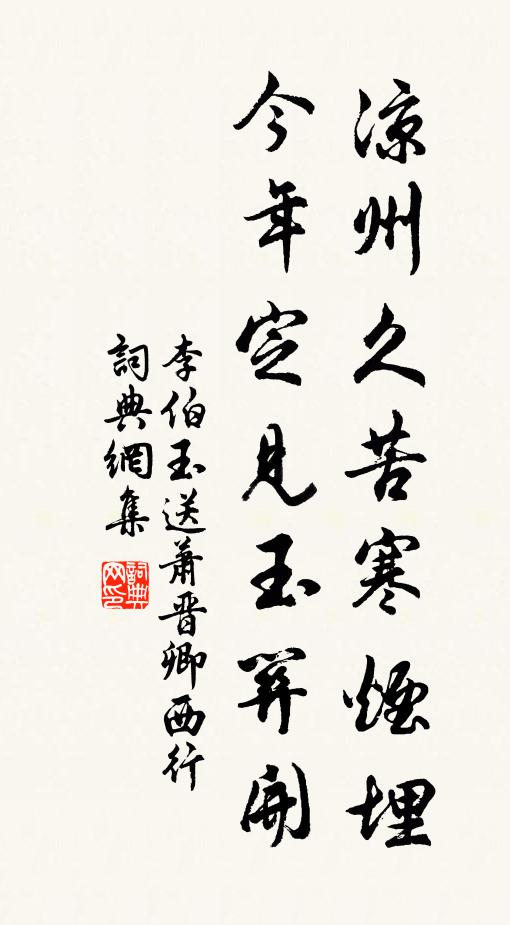 涼州久苦寒煙埋
今年定見玉關開
李伯玉送蕭晉卿西行
詞典網集
詞典
网印